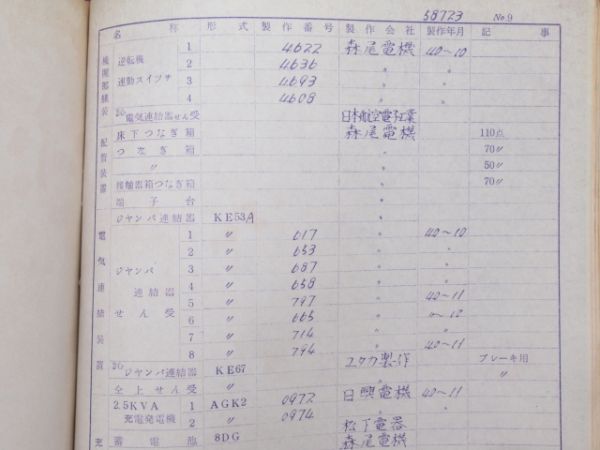 58723 No.9
名 称 形 式 製 作 番 号 製 作 会 社 製作年月 記 事
逆転機 1 4622 森尾電機 40~10
2 4636 〃 〃
連動スイツチ 3 4693 〃 〃
4 4608 〃 〃
電気連結器せん受 日本航空電子工業
床下つなぎ箱 森尾電機 110点
つ な ぎ 箱 〃 70〃
〃 〃 50〃
接触器箱つなぎ箱 〃 70〃
端 子 台 〃
配管装置
ジヤンパ連結器 KE53A 〃
1 〃 617 〃 40~10
2 〃 653 〃 〃
ジヤンパ 3 〃 687 〃 〃
連結器 4 〃 658 〃 〃
5 〃 797 〃 40~11
せ ん 受 6 〃 665 〃 〃~12
7 〃 714 〃 〃
8 〃 794 〃 40~11
電気連結装置
ジヤンパ連結器 KE67 ユタカ製作 ブレーキ用
仝上せん受 〃 〃
2.5KVA 1 AGK2 0972 日興電機 40~11
充電発電機 2 〃 0974 〃
松下電器
充 蓄 電 池 8DG 森尾電機